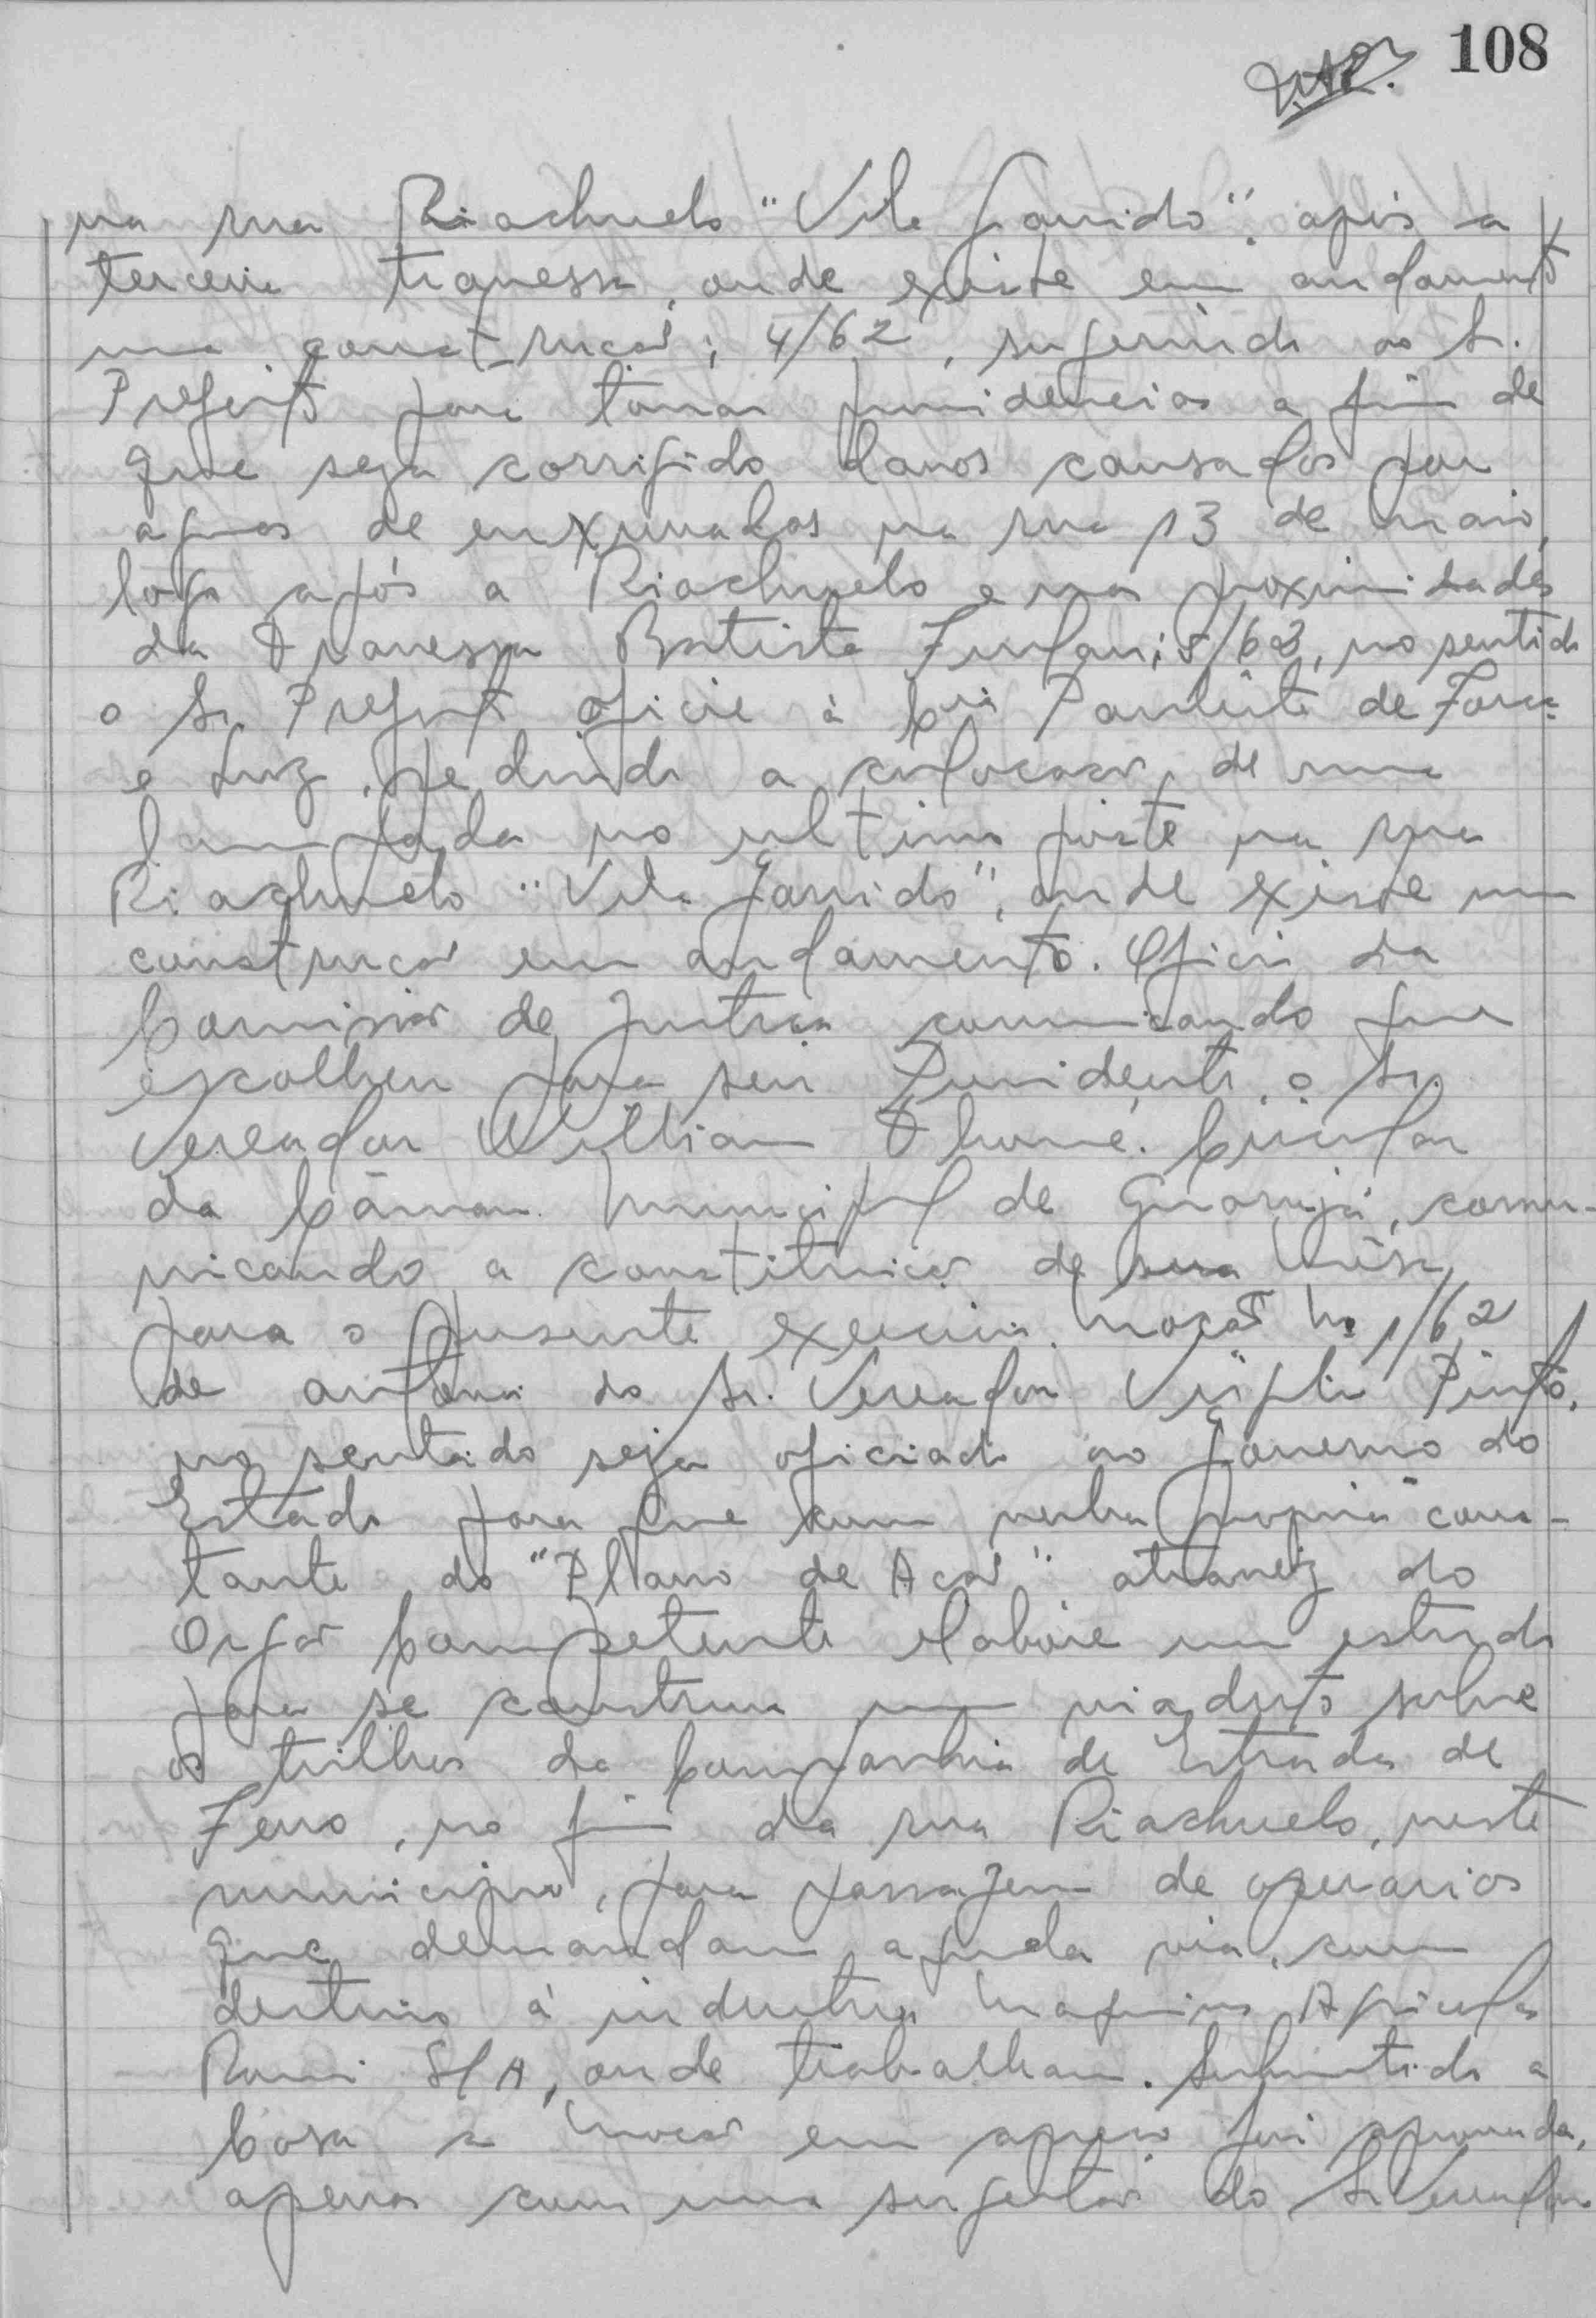 108
na rua Riachuelo "Vila Garrido", após a
terceira travessa, onde existe em andamento
uma construcão; 4/62, sugerindo ao Sr.
Prefeito para tomar providencias a fim de
que seja corrigido danos causados por
aguas de enxurradas na rua 13 de maio,
logo após a Riachuelo e nas proximidades
da Travessa Batista Furlan; 5/62, no sentido
o Sr. Prefeito oficie à Cia Paulista de Forca
e Luz, pedindo a colocacão de uma
lampada no ultimo poste na rua
Riachuelo "Vila Garrido", onde existe um
construcão em andamento. Oficio da
Comissão de Justica comunicando que
escolheu para seu Presidente, o Sr.
Vereador Willian Thomé. Circular
da Câmara Municipal de Guarujá, comu-
nicando a constituicão de sua Mêsa,
para o presente exercicio. Mocão No 1/62
de autoria do Sr. Vereador Virgilio Pinto,
no sentido seja oficiado ao Governo do
Estado para que com verba propria cons-
tante do "Plano de Acão" atravez do
Orgão Competente elabore um estudo
para se construir um viaduto sobre
os trilhos da Companhia de Estrada de
Ferro, no fim da rua Riachuelo, neste
municipio, para passagem de operarios
que demandam aquela via, com
destino à industria Maquinas Agricolas
Romi S/A, onde trabalham. Submetido a
Casa a Mocão em apreco foi aprovada,
apenas com uma sugestão do Sr Vereador